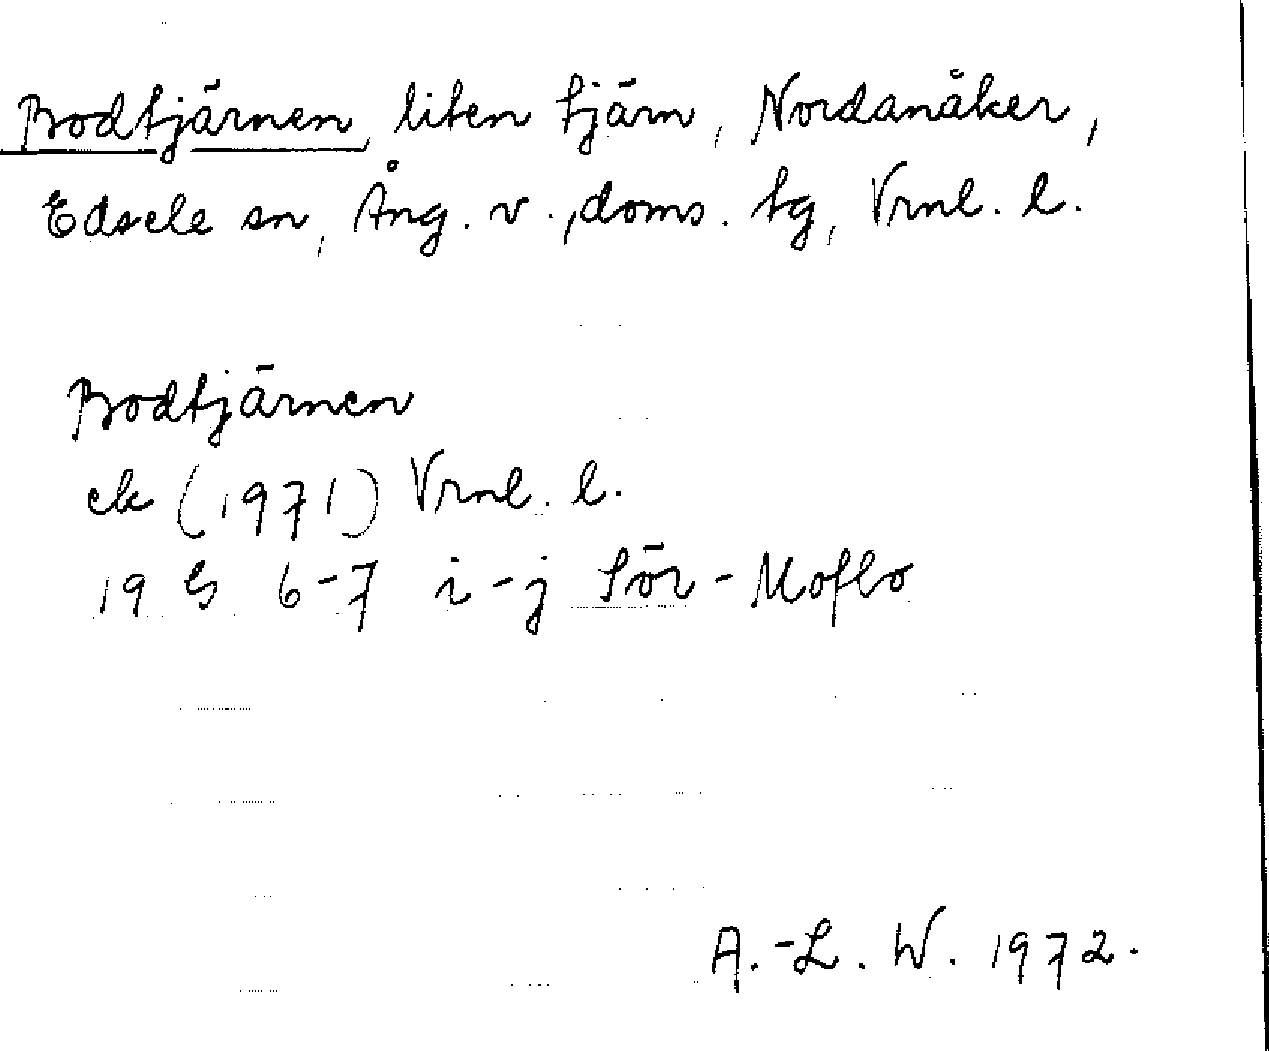 Bodtjärnen, liten tjärn, Nordanåker,
Edsele sn, Ång. v., doms. tg, Vrnl. l.
Bodtjärnen
ek (1971) Vrnl. l.
19 G 6-7 i-j Sör-Moflo
A.-L. W. 1972.